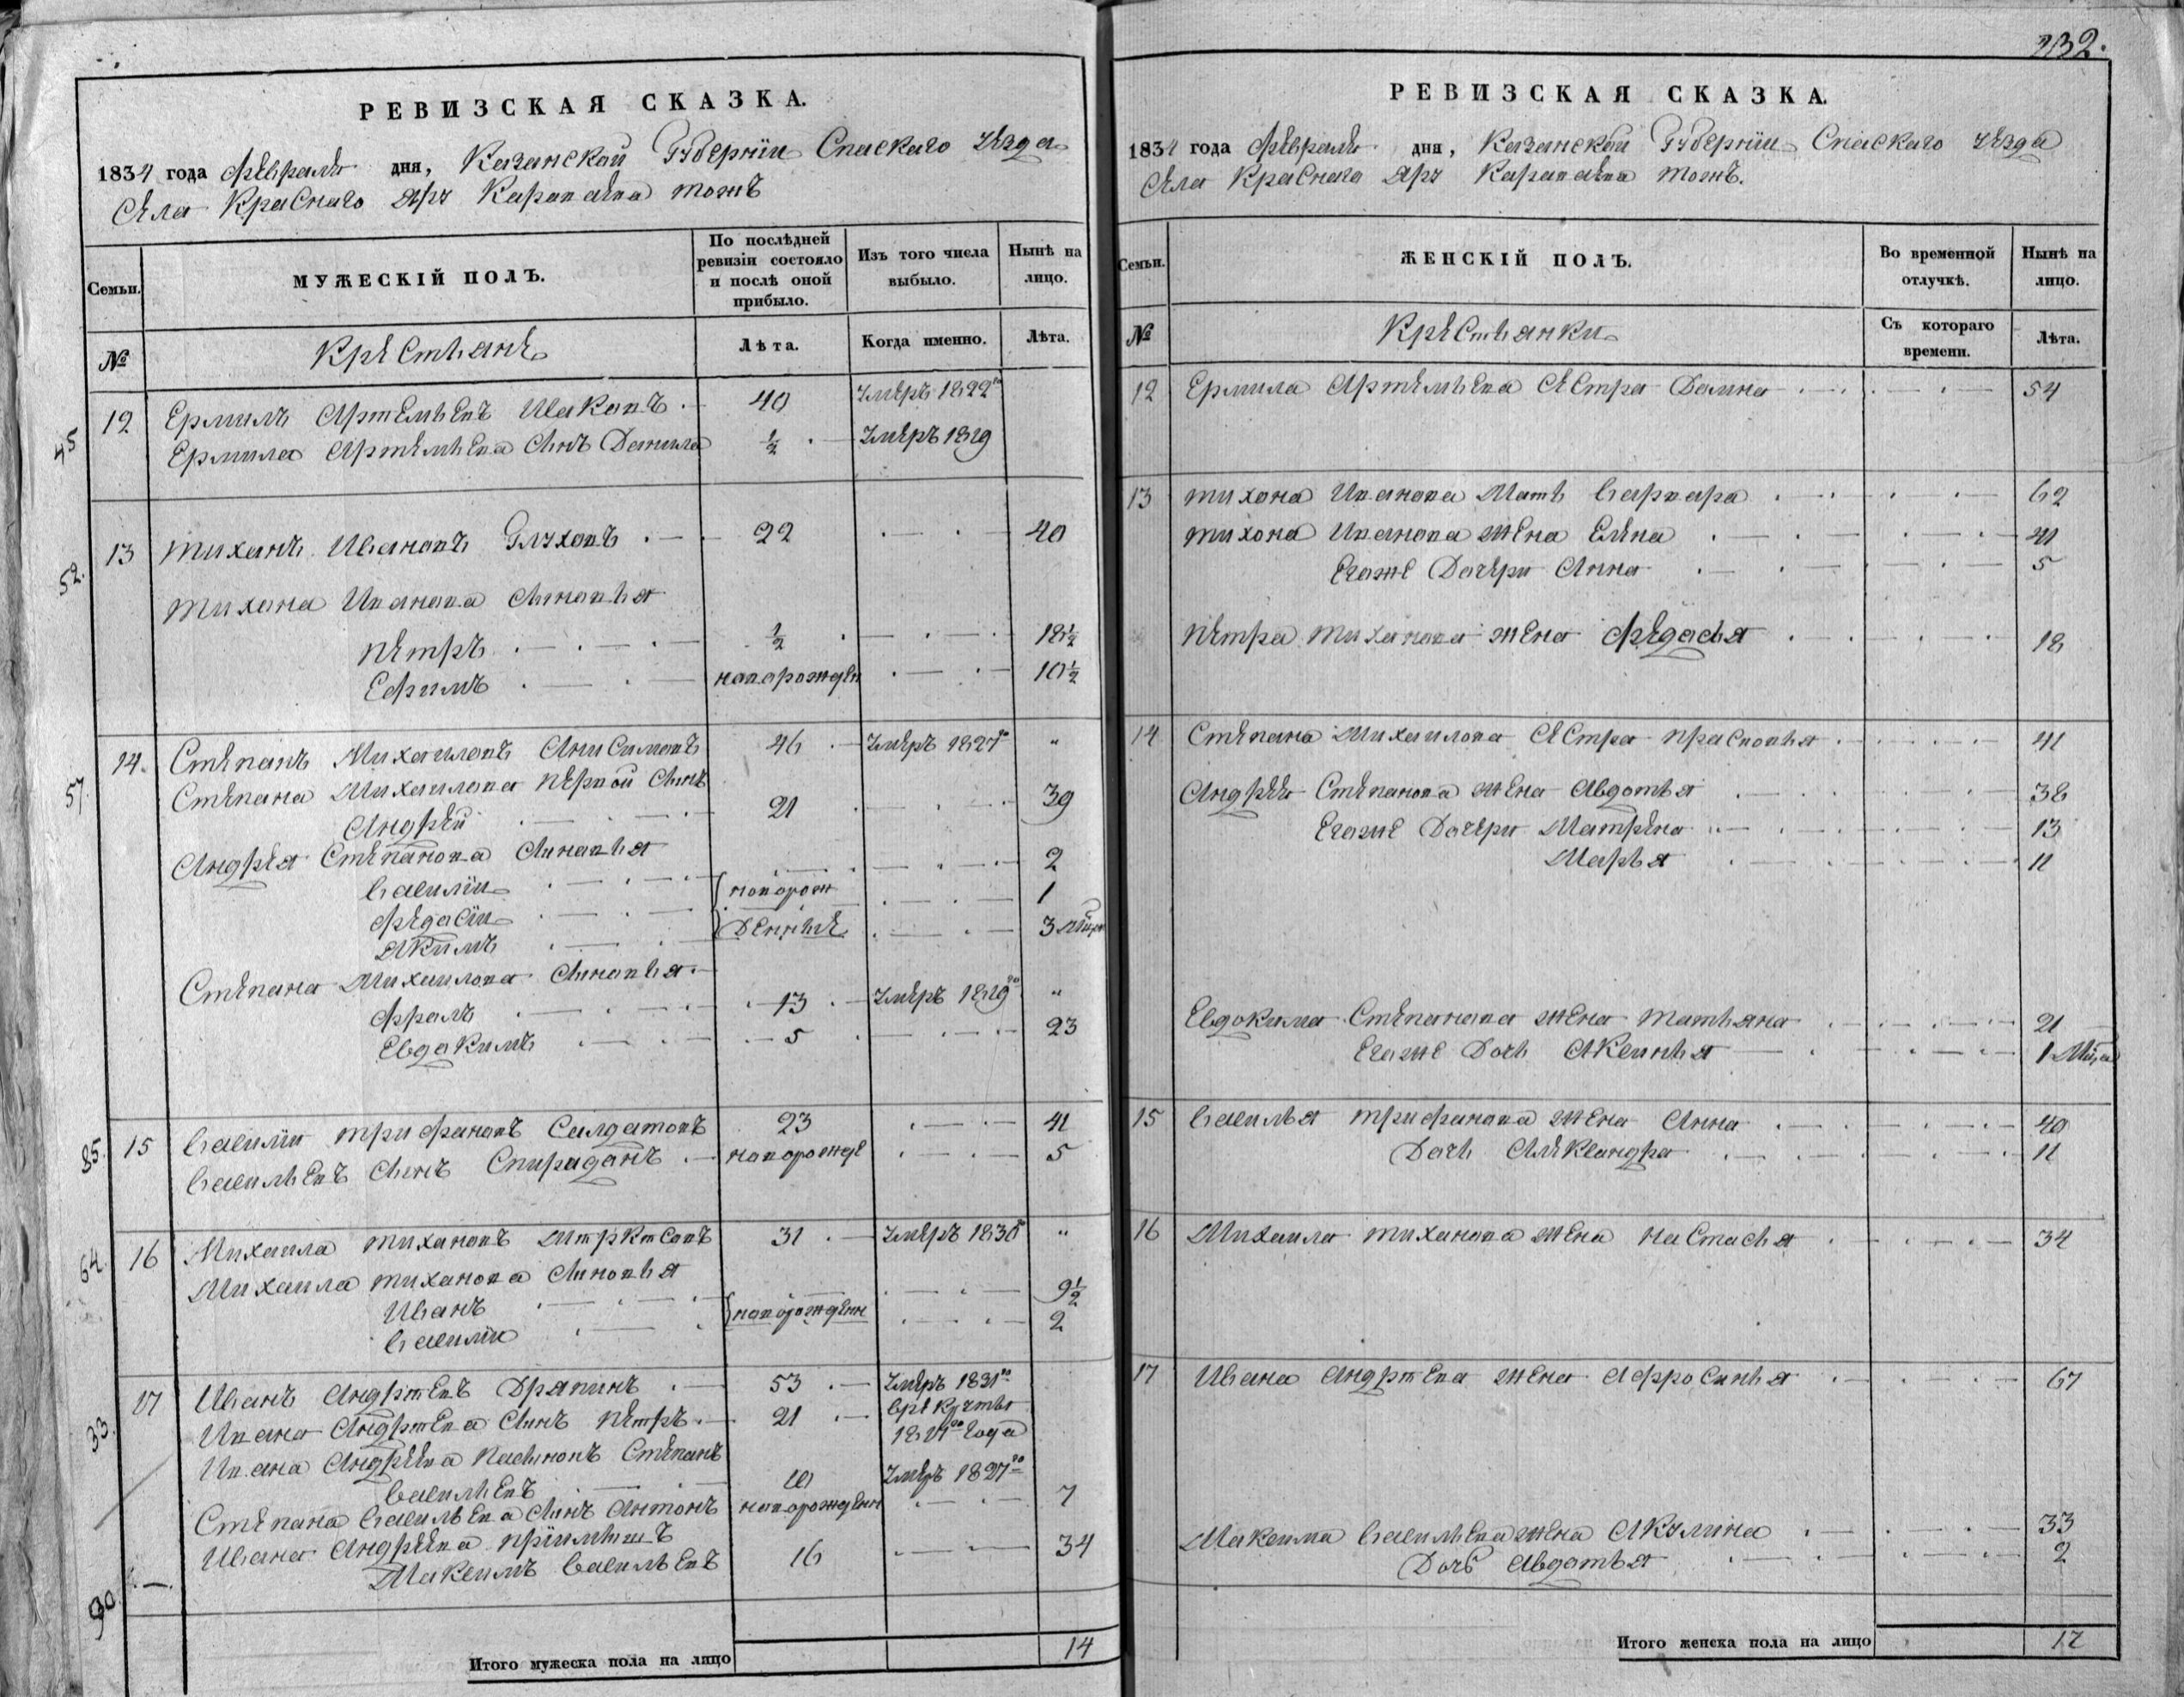 232.
РЕВИЗСКАЯ СКАЗКА.
1834 года февраля дня, Казанской Губернии Спаскаго уезда
Села Краснаго Яру Карапаева тожъ
Семьи.
МУЖЕСКІЙ ПОЛЪ.
По послѣдней ревизіи состояло и послѣ оной прибыло.
Изъ того числа выбыло.
Нынѣ на лицо.
№
Крестьяне
Лѣта.
Когда именно.
Лѣта.
45
12 Ермилъ Артемьевъ Исаковъ 40 умеръ 1822го
Ермила Артемьева сынъ Данила ½ умеръ 1819
52.
13 Тиханъ Ивановъ Глуховъ 22 40
Тихана Иванова сыновья
Петръ ½ 18½
Ефимъ новорожден 10½
57.
14. Степанъ Михаиловъ Анисимовъ 46 умеръ 1827го "
Степана Михаилова первой сынъ
Андрей 21 39
Андрея Степанова сыновья
Василии новорож 2
Федосіи 1
Акимъ денные 3 мѣся
Степана Михаилова сыновья
Фролъ 13 умеръ 1819го "
Евдакимъ 5 23
85.
15 Василіи Трифановъ Салдатовъ 23 41
Васильевъ сынъ Спирадонъ новорожде 5
64.
16 Михаила Тихановъ 31 умеръ 1830го "
Михаила Тиханова сыновья
Иванъ новорожденн 9½
Василіи 2
33.
17 Иванъ Андреевъ Дряпинъ 53 умеръ 1831го
Ивана Андреева сынъ Петръ 21 врекруты
го года
Ивана Андреева Степанъ
Васильевъ 10 умеръ 1827го
Степана Васильева сынъ Антонъ новорожденн 7
90.
Ивана Андреева пріимышъ
Максимъ Васильевъ 16 34
Итого мужеска пола на лицо 14
РЕВИЗСКАЯ СКАЗКА.
1834 года февраля дня, Казанской Губернии Спаскаго уезда
Села Краснаго Яру Карапаева тожъ.
Семьи.
ЖЕНСКІЙ ПОЛЪ.
Во временной отлучкѣ.
Нынѣ на лицо.
№
Крестьянки
Съ котораго времени.
Лѣта.
12 Ермила Артемьева сестра Домна 54
13 Тихона Иванова мать Варвара 62
Тихона Иванова жена Елена 41
Егоже дочери Анна 5
Петра Тиханова жена Федосья 18
14 Степана Михаилова сестра Прасковья 41
Андрея Степанова жена Авдотья 38
Егоже дочери Матрена 13
Марья 11
Евдокима Степанова жена Татьяна 21
Егоже дочь Аксинья 1 мѣся
15 Василья Трифанова жена Анна 40
Дочь Александра 11
16 Михаила Тиханова жена Настасья 34
17 Ивана Андреева жена Афросинья 67
Максима Васильева жена Акулина 33
Дочь Авдотья 2
Итого женска пола на лицо 17